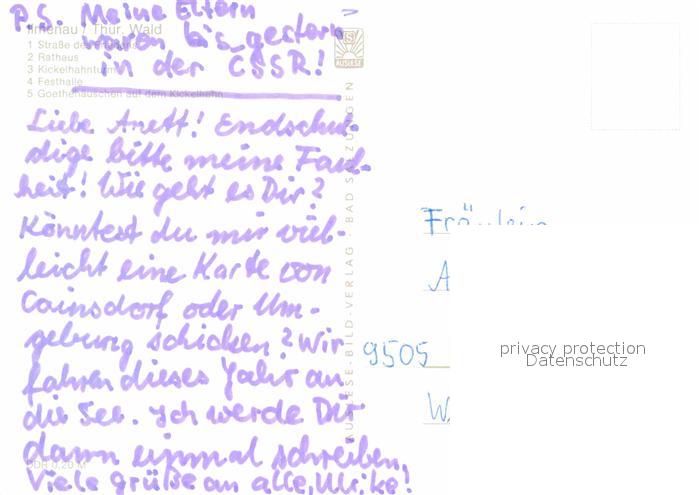 P.S. Meine Eltern
waren bis gestern
in der ČSSR!
Ilmenau / Thür. Wald
1 Straße des Friedens
2 Rathaus
3 Kickelhahnturm
4 Festhalle
5 Goethehäuschen auf dem Kickelhahn
Liebe Anett! Endschul-
dige bitte meine Faul-
heit! Wie geht es Dir?
Könntest du mir viel-
leicht eine Karte von
Cainsdorf oder Um-
gebung schicken? Wir
fahren dieses Jahr an
die See. Ich werde Dir
dann einmal schreiben.
Viele grüße an alle, Ulrike!
DDR 0,20 M
AUSLESE
AUSLESE-BILD-VERLAG BAD SALZUNGEN
Fräulein
A
9505
W
privacy protection
Datenschutz